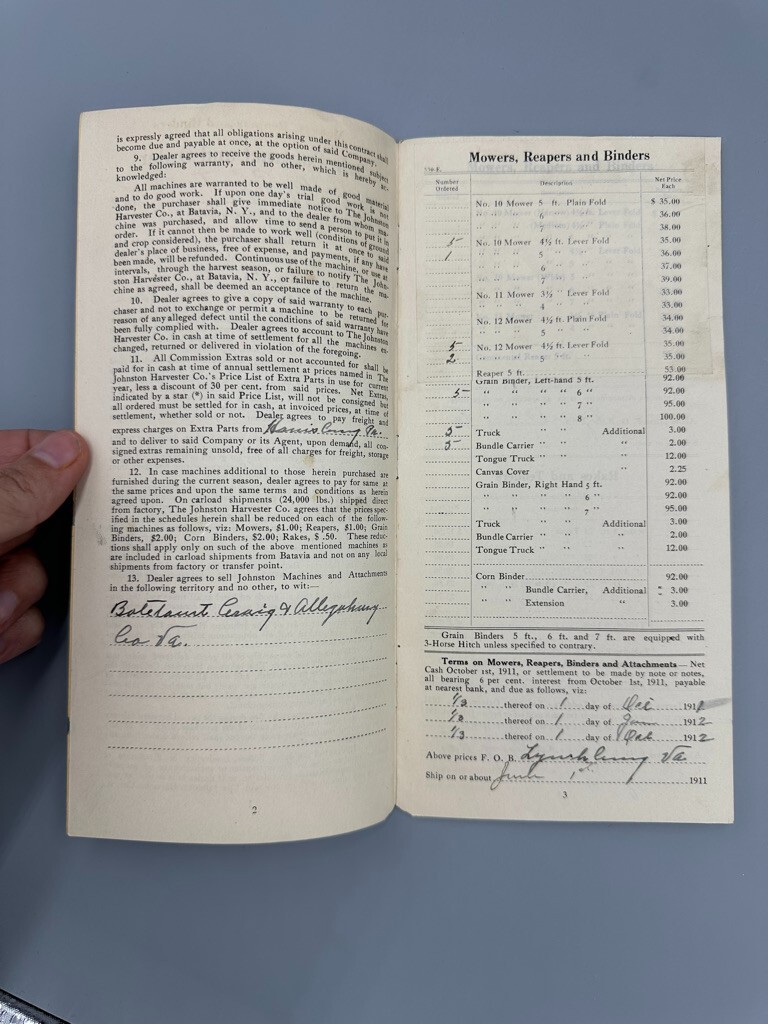 is expressly agreed that all obligations arising under this contract shall
become due and payable at once, at the option of said Company.
9. Dealer agrees to receive the goods herein mentioned subject
to the following warranty, and no other, which is hereby ac-
knowledged:
All machines are warranted to be well made of good material
and to do good work. If upon one day's trial good work is not
done, the purchaser shall give immediate notice to The Johnston
Harvester Co., at Batavia, N. Y., and to the dealer from whom ma-
chine was purchased, and allow time to send a person to put it in
order. If it cannot then be made to work well (conditions of ground
and crop considered), the purchaser shall return it at once to said
dealer's place of business, free of expense, and payments, if any have
been made, will be refunded. Continuous use of the machine, or use at
intervals, through the harvest season, or failure to notify The John-
ston Harvester Co., at Batavia, N. Y., or failure to return the ma-
chine as agreed, shall be deemed an acceptance of the machine.
10. Dealer agrees to give a copy of said warranty to each pur-
chaser and not to exchange or permit a machine to be returned for
reason of any alleged defect until the conditions of said warranty have
been fully complied with. Dealer agrees to account to The Johnston
Harvester Co. in cash at time of settlement for all the machines ex-
changed, returned or delivered in violation of the foregoing.
11. All Commission Extras sold or not accounted for shall be
paid for in cash at time of annual settlement at prices named in The
Johnston Harvester Co.'s Price List of Extra Parts in use for current
year, less a discount of 30 per cent. from said prices. Net Extras,
indicated by a star (*) in said Price List, will not be consigned but
all ordered must be settled for in cash, at invoiced prices, at time of
settlement, whether sold or not. Dealer agrees to pay freight and
express charges on Extra Parts from Harrisburg Pa.
and to deliver to said Company or its Agent, upon demand, all con-
signed extras remaining unsold, free of all charges for freight, storage
or other expenses.
12. In case machines additional to those herein purchased are
furnished during the current season, dealer agrees to pay for same at
the same prices and upon the same terms and conditions as herein
agreed upon. On carload shipments (24,000 lbs.) shipped direct
from factory, The Johnston Harvester Co. agrees that the prices spec-
ified in the schedules herein shall be reduced on each of the follow-
ing machines as follows, viz: Mowers, $1.00; Reapers, $1.00; Grain
Binders, $2.00; Corn Binders, $2.00; Rakes, $ .50. These reduc-
tions shall apply only on such of the above mentioned machines as
are included in carload shipments from Batavia and not on any local
shipments from factory or transfer point.
13. Dealer agrees to sell Johnston Machines and Attachments
in the following territory and no other, to wit:—
Botetourt Craig & Alleghany
Co Va.
2
Mowers, Reapers and Binders
Number Ordered Description Net Price Each
No. 10 Mower 5 ft. Plain Fold $ 35.00
" " " 6 " " " 36.00
" " " 7 " " " 38.00
1 No. 10 Mower 4½ ft. Lever Fold 35.00
1 " " " 5 " " " 36.00
" " " 6 " " " 37.00
" " " 7 " " " 39.00
No. 11 Mower 3½ " Lever Fold 33.00
" " " 4 " " " 33.00
No. 12 Mower 4½ ft. Plain Fold 34.00
" " " 5 " " " 34.00
5 No. 12 Mower 4½ ft. Lever Fold 35.00
2 " " " 5 " " " 35.00
Reaper 5 ft. 53.00
Grain Binder, Left-hand 5 ft. 92.00
5 " " " " 6 " 92.00
" " " " 7 " 95.00
" " " " 8 " 100.00
5 Truck " " Additional 3.00
5 Bundle Carrier " " " 2.00
Tongue Truck " " " 12.00
Canvas Cover " 2.25
Grain Binder, Right Hand 5 ft. 92.00
" " " " 6 " 92.00
" " " " 7 " 95.00
Truck " " Additional 3.00
Bundle Carrier " " " 2.00
Tongue Truck " " " 12.00
Corn Binder 92.00
" " Bundle Carrier, Additional 3.00
" " Extension " 3.00
Grain Binders 5 ft., 6 ft. and 7 ft. are equipped with
3-Horse Hitch unless specified to contrary.
Terms on Mowers, Reapers, Binders and Attachments — Net
Cash October 1st, 1911, or settlement to be made by note or notes,
all bearing 6 per cent. interest from October 1st, 1911, payable
at nearest bank, and due as follows, viz:
1/3 thereof on 1 day of Oct 1911
1/3 thereof on 1 day of Jan 1912
1/3 thereof on 1 day of Oct 1912
Above prices F. O. B. Lynchburg Va
Ship on or about June 1st 1911
3